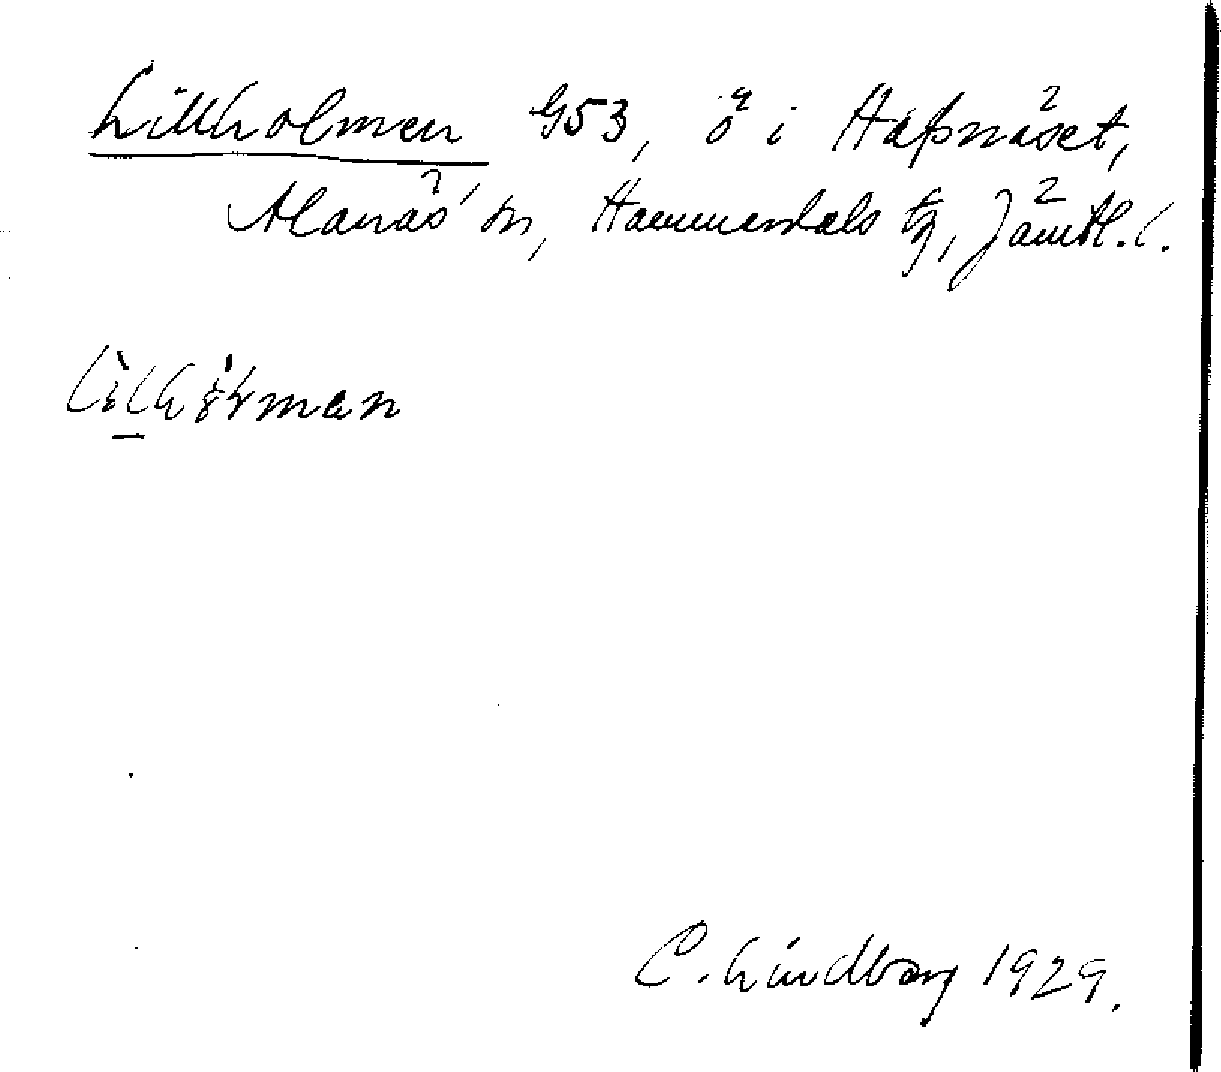 Lillholmen G53, ö i Hafsnäset,
Alanäs sn, Hammerdals tg, Jämtl. l.
C. Lindberg 1929.